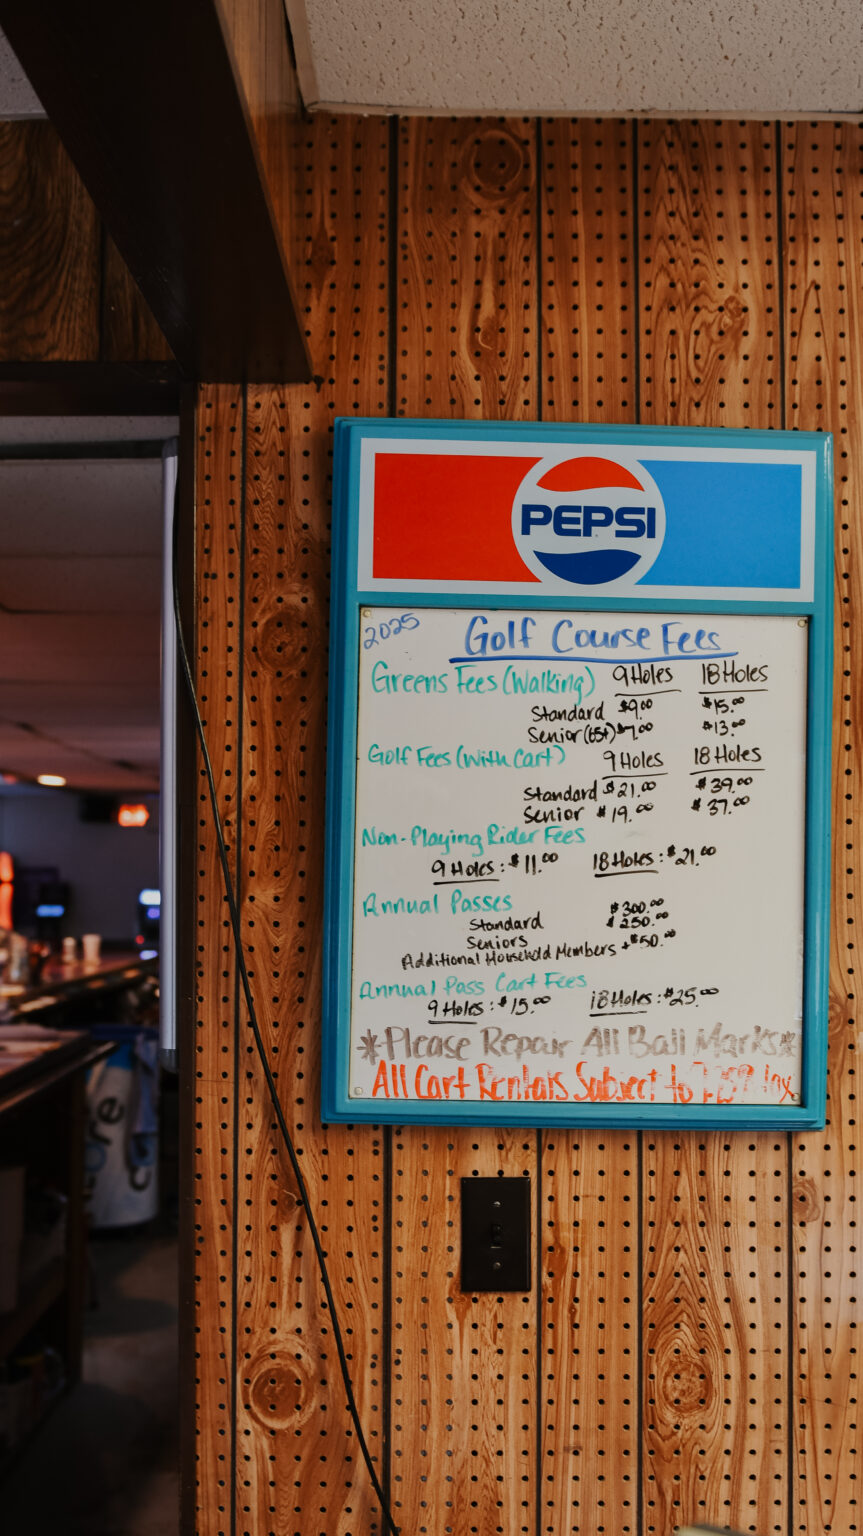 PEPSI
2025 Golf Course Fees
Greens Fees (Walking) 9 Holes 18 Holes
Standard $9.00 $15.00
Senior (65+) $7.00 $13.00
Golf Fees (With Cart) 9 Holes 18 Holes
Standard $21.00 $39.00
Senior $19.00 $37.00
Non-Playing Rider Fees
9 Holes: $11.00 18 Holes: $21.00
Annual Passes
Standard $300.00
Seniors $250.00
Additional Household Members +$50.00
Annual Pass Cart Fees
9 Holes: $15.00 18 Holes: $25.00
*Please Repair All Ball Marks*
All Cart Rentals Subject to 7.25% tax